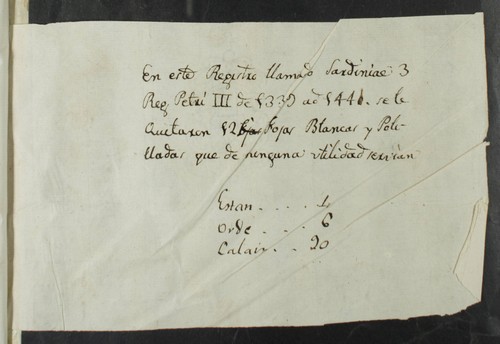 En este Registro llamado Sardiniae 3
Reg. Petri III de 1339 ad 1441. se le
Quitaron 126 hojas Blancas y Poli-
lladas que de ninguna utilidad servian
Estan . . . . 1
Orde . . . . 6
Calaix . . 20